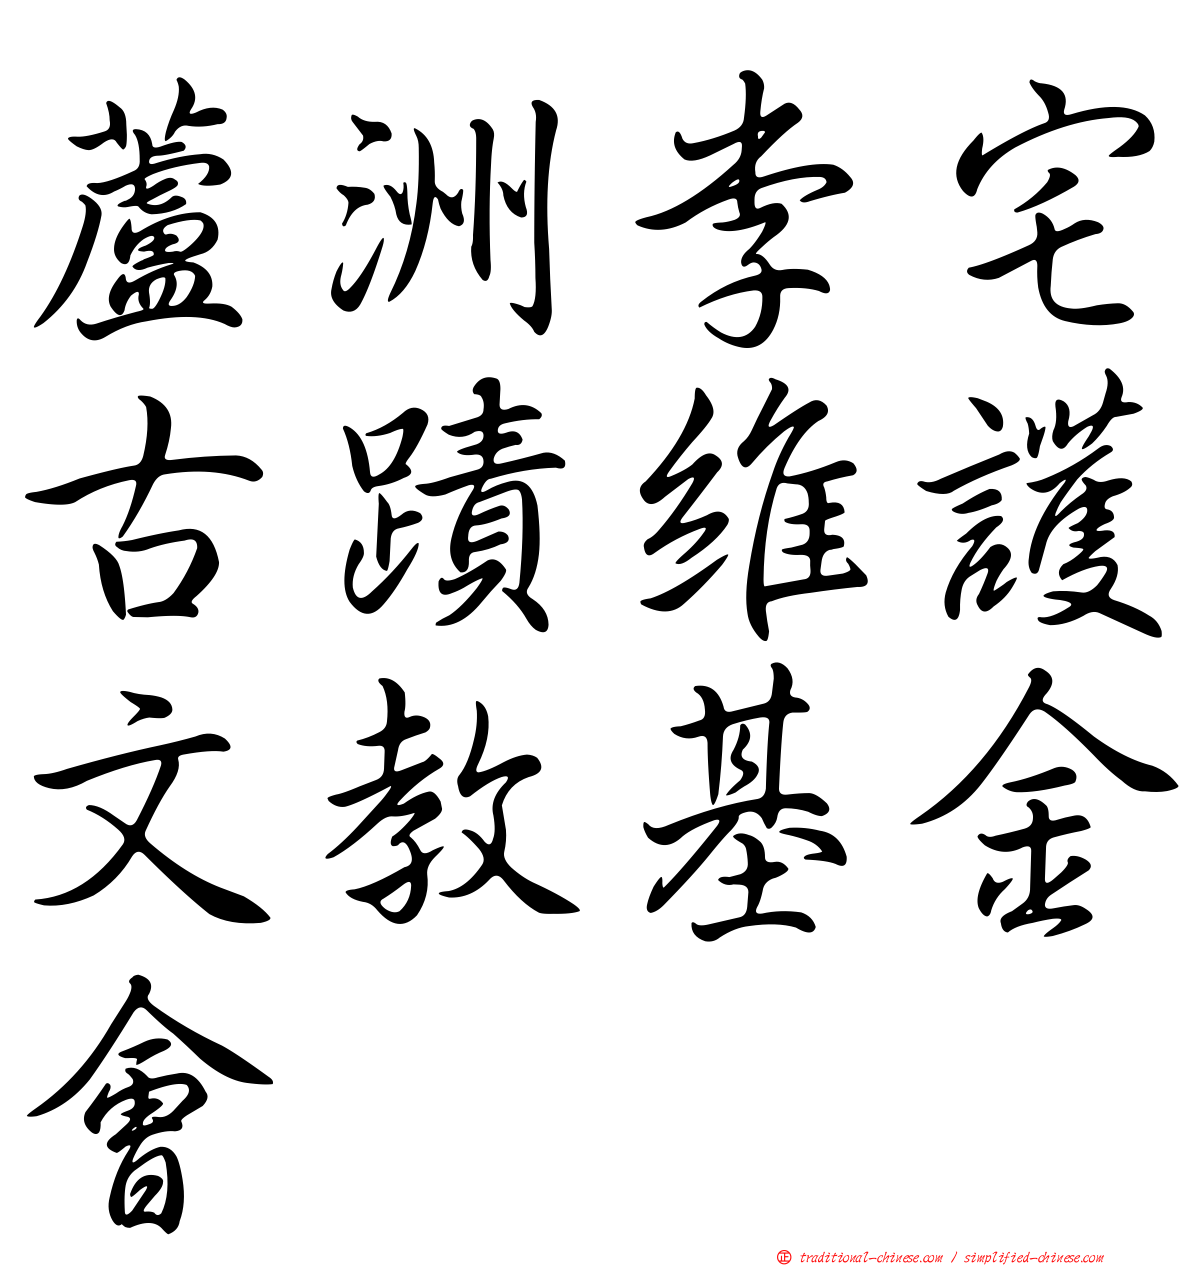 蘆洲李宅
古蹟維護
文教基金
會
㊣ traditional-chinese.com / simplified-chinese.com